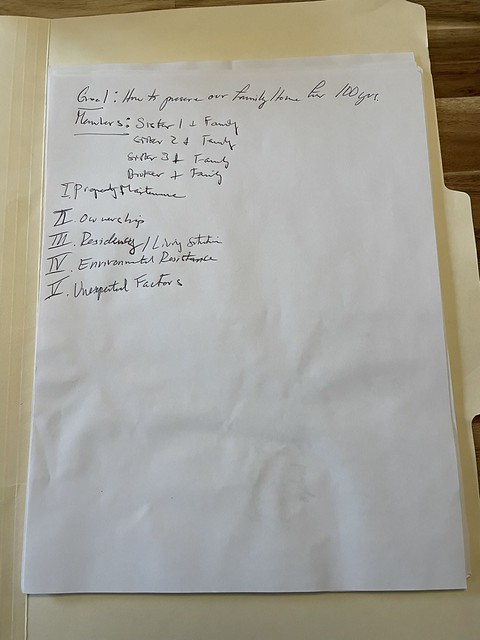 Goal: How to preserve our Family Home for 100 yrs.
Members: Sister 1 + Family
Sister 2 + Family
Sister 3 + Family
Brother + Family
I. Property Maintenance
II. Ownership
III. Residency / Living Situation
IV. Environmental Resistance
V. Unexpected Factors